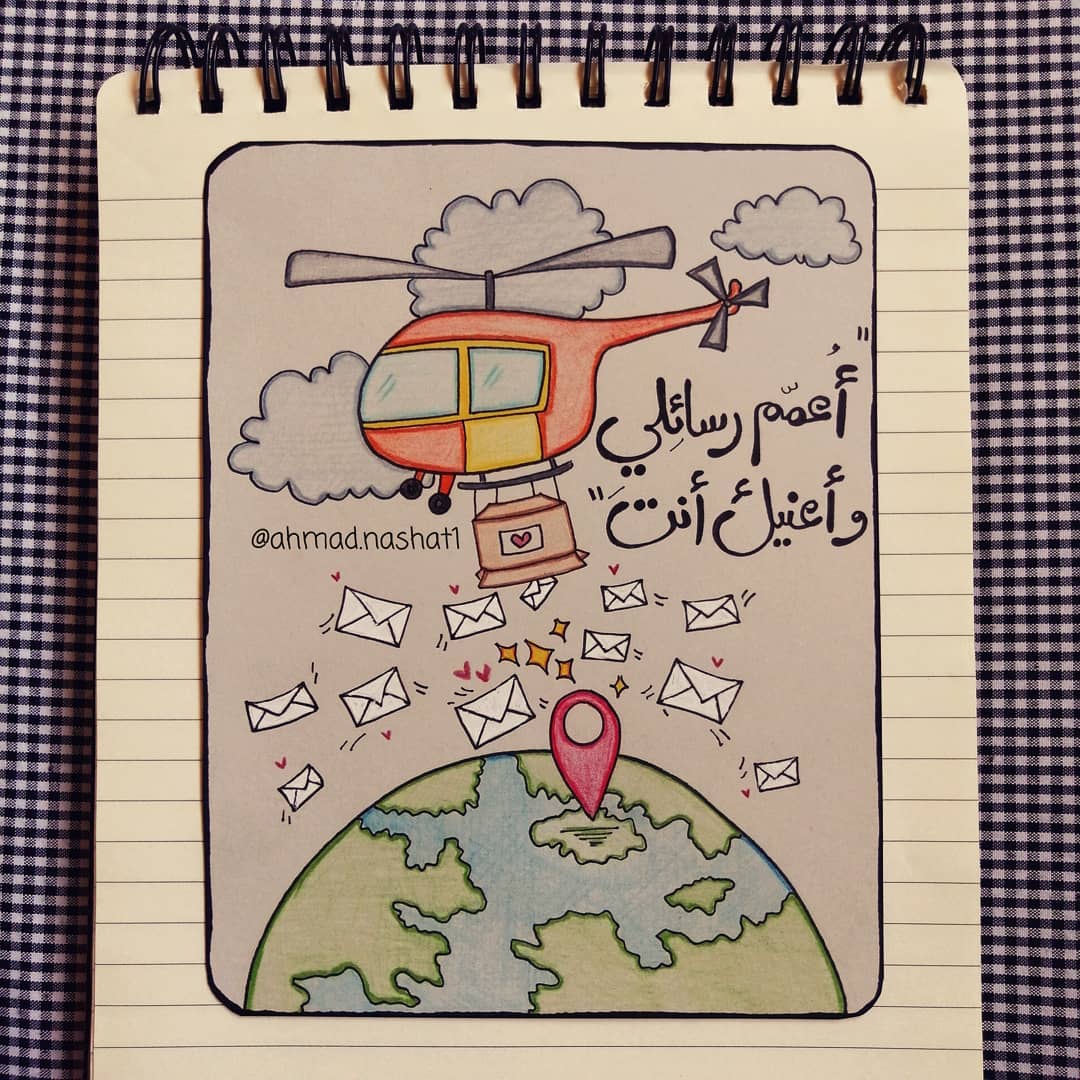 "أُعمّم رسائِلي
وأعنيكَ أنتَ"
@ahmad.nashat1